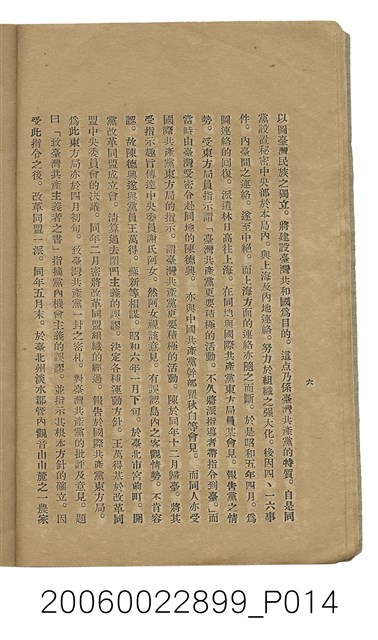 以圖臺灣民族之獨立。將建設臺灣共和國爲目的。這点乃係臺灣共產黨的特質。自是同
黨設置秘密中央部於本島內。與上海及內地連絡。努力於組織之强大化。後因四、一六事
件。內臺間之連絡。遂至中絕。而上海方面的連絡亦隨之而斷。於是昭和五年四月。爲
圖連絡的回復。派遣林日高往上海。在同地與國際共產黨東方局員某會見。報告黨之情
勢。受東方局員指示謂「臺灣共產黨更要積極的活動。不久將派指導者帶指令到臺。而
當時由臺灣受密令赴同地的陳德興。亦與中國共產黨幹部瞿秋白等會見。而同人亦受
國際共產黨東方局的指示。謂臺灣共產黨更要積極的活動。陳於同年十二月歸臺。將其
受指示趣旨傳達中央委員謝氏阿女。然阿女視該意見。有誤認島內之客觀情勢。不肯容
認。故陳德興遂與黨員王萬得。蘇新等相謀。昭和六年一月下旬。於臺北市宮前町。開
黨改革同盟成立會。清算過去閉門主義的誤謬。決定各種運動方針。王萬得基於改革同
盟中央委員會的決議。同年二月密將改革同盟組織的經過。報告於國際共產黨東方局。
爲此東方局亦於四月初旬。致臺灣共產黨一封之密札。對臺灣共產黨的批評及意見。題
曰「致臺灣共產主義者之書」指摘黨內機會主義的誤謬。並指示其根本方針的確立。因
受此指令之後。改革同盟一派。同年五月末。於臺北州淡水郡管內觀音山山麓之一農家
六
20060022899_P014